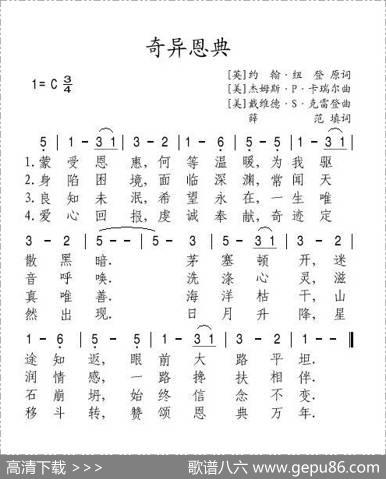 奇异恩典
1=C 3/4
[英]约 翰·纽 登 原词
[美]杰姆斯·P·卡瑞尔曲
[美]戴维德·S·克雷登曲
薛 范 填词
5 | 1 - 3 1 | 3 - 2 | 1 - 6 | 5 - 5 | 1 - 3 1 |
1.蒙 受 恩 惠,何 等 温 暖,为 我 驱
2.身 陷 困 境,面 临 深 渊,常 闻 天
3.良 知 未 泯,希 望 永 在,一 生 唯
4.爱 心 回 报,虔 诚 奉 献,奇 迹 定
3 - 2 | 5 - - | 5 - 3 | 5 - 3 1 | 3 - 2 |
散 黑 暗. 茅 塞 顿 开,迷
音 呼 唤. 洗 涤 心 灵,滋
真 唯 善. 海 洋 枯 干,山
然 出 现. 日 月 升 降,星
1 - 6 | 5 - 5 | 1 - 3 1 | 3 - 2 | 1 - - ‖
途 知 返,眼 前 大 路 平 坦.
润 情 感,一 路 搀 扶 相 伴.
石 崩 坍,始 终 信 念 不 变.
移 斗 转,赞 颂 恩 典 万 年.
高清下载 >>>
歌谱八六 www.gepu86.com